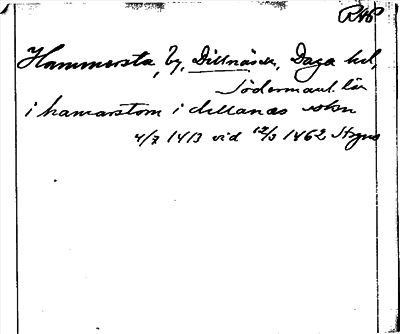 Hammersta, by, Dillnäs sn, Daga hd,
Södermanl. län
i hamarstom i dillanæs sokn
4/7 1413 vid 12/3 1462 Stregnæs